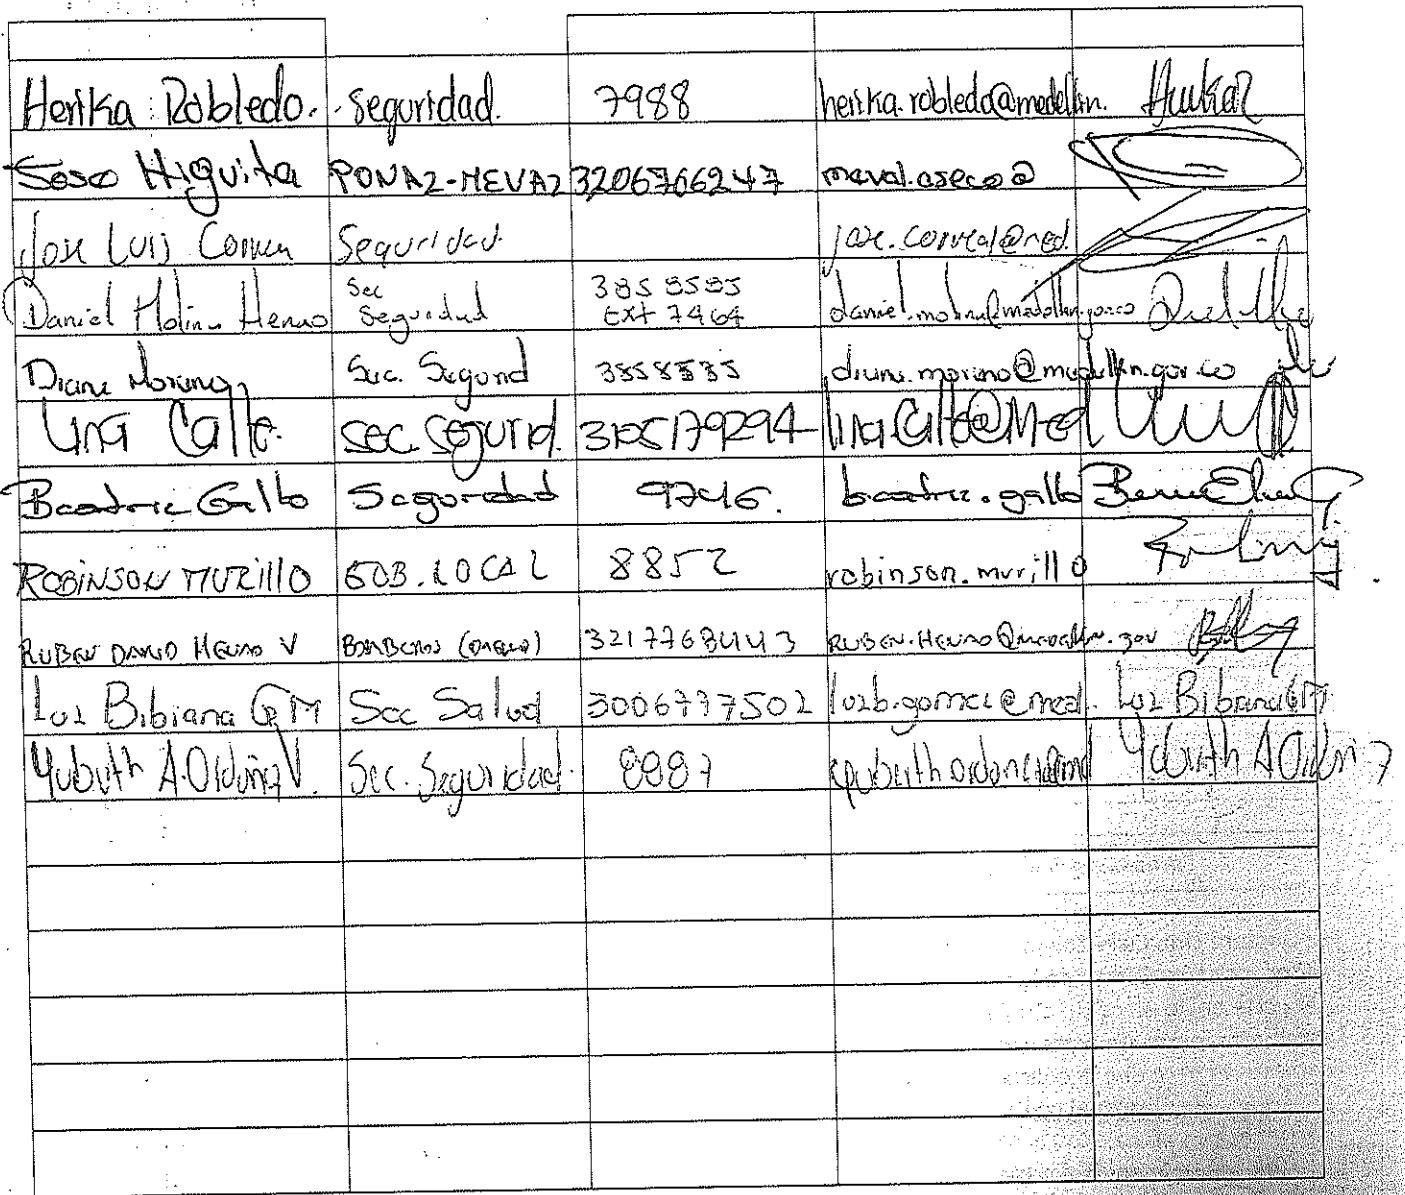 Herika Robledo. Seguridad. 7988 herika.robledo@medellin.
Higuita 3206766247 meval.aseco@
Jose Luis Correa Seguridad
Daniel Molina Henao Sec Seguridad 3855555 Ext 7464 daniel.molina@medellin.gov.co
Diana Moreno Sec. Segurid 3858555 diana.moreno@medellin.gov.co
Lina Calle. Sec. Segurid. 3105179294 linaCalle@Med
Beatriz Gallo Seguridad 9746. beatriz.gallo
ROBINSON MURILLO GOB. LOCAL 8852 robinson.murillo
RUBEN DARIO HENAO V BOMBEROS 3217768443 RUBEN.HENAO@MEDELLIN.gov
Luz Bibiana GM Sec Salud 3006777502 luzb.gomez@med. Luz Bibiana GM
A. V. Sec. Seguridad.